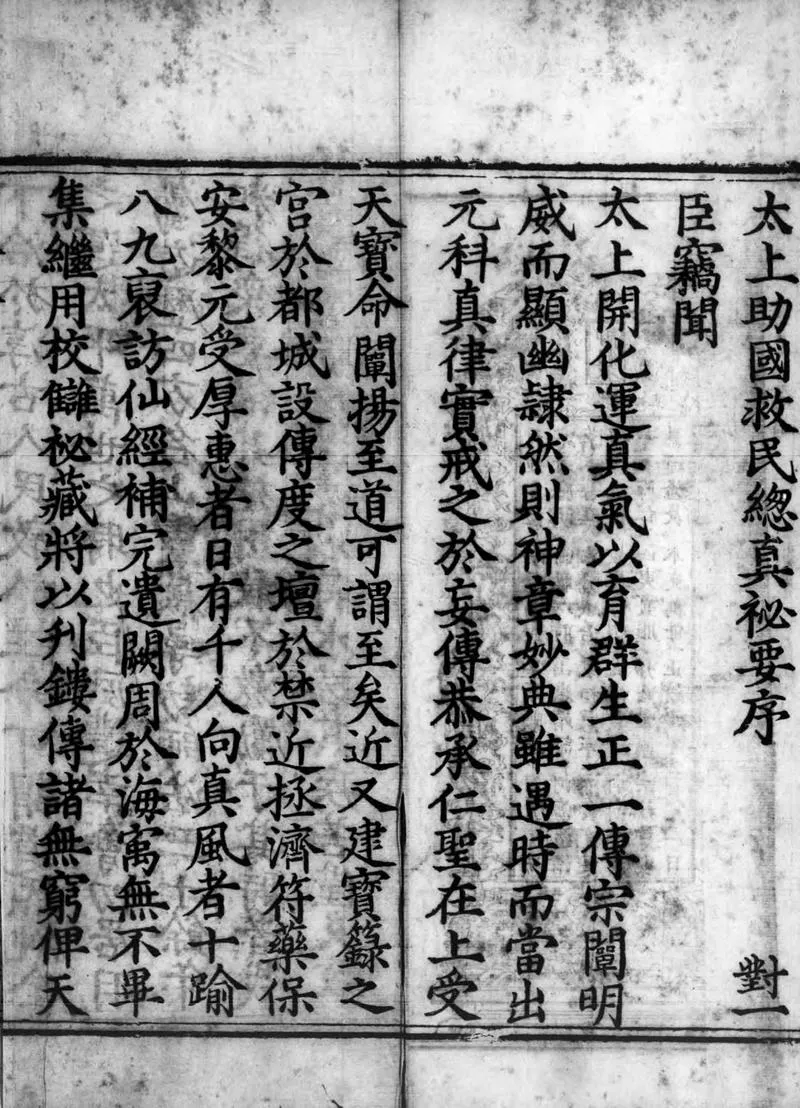 太上助國救民緫真祕要序 對一
臣竊聞
太上開化運真氣以育群生正一傳宗闡明
威而顯幽隷然則神章妙典雖遇時而當出
元科真律實戒之於妄傳恭承仁聖在上受
天寶命闡揚至道可謂至矣近又建寶籙之
宮於都城設傳度之壇於禁近拯濟符藥保
安黎元受厚惠者日有千人向真風者十踰
八九裒訪仙經補完遺闕周於海㝢無不畢
集繼用校讎祕藏將以刋鏤傳諸無窮俾天